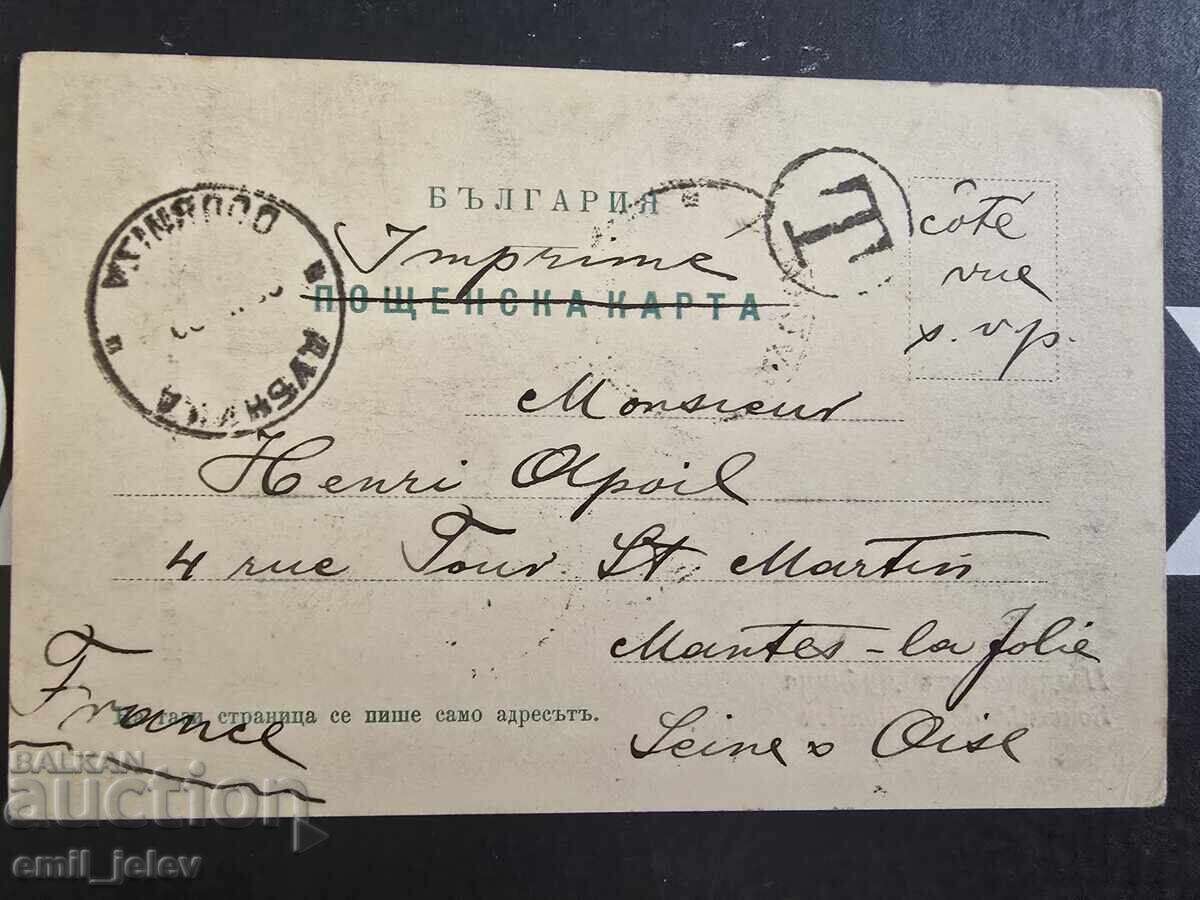 БЪЛГАРИЯ
Imprimé
ПОЩЕНСКА КАРТА
T
côté
vue
s. v. p.
ДУБНИЦА
DOUBNITZA
Monsieur
Henri Apoil
4 rue Tour St. Martin
Mantes-la Jolie
Seine & Oise
France
На тази страница се пише само адресътъ.
BALKAN
auction
emil_jelev